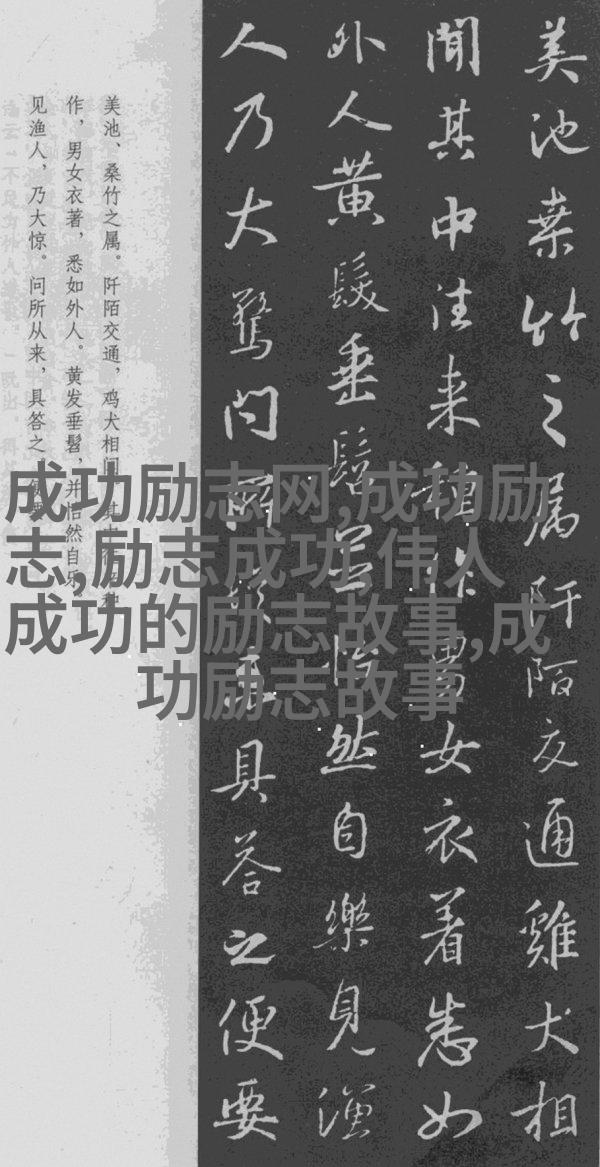 美池桒竹之属阡陌交通雞犬相
聞其中往来種作男女衣着悉如
外人黄髮垂髫並怡然自樂見漁
人乃大驚問所從来具答之便要
美池、桑竹之属。阡陌交通，鸡犬相
作，男女衣著，悉如外人。黄发垂髫，并怡然自乐。
见渔人，乃大惊。问所从来，具答之
成功励志网,成功励
志,励志成功,伟人
成功的励志故事,成
功励志故事